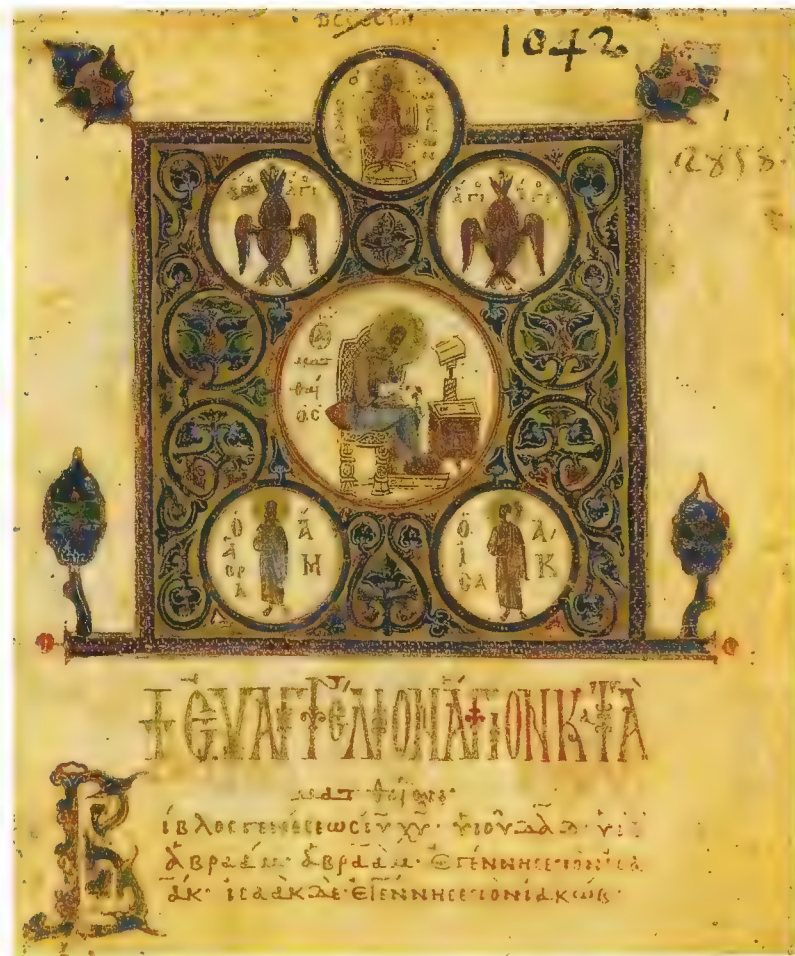 1042
Ὁ ΠΑΛΑΙΟ Σ ΗΜΕΡΩΝ
ΑΓΙ
ΑΓΙ
Ὁ ΜΑΤ
ΘΑΙ
ΟΣ
Ὁ ΑΒΡΑ ΑΜ
Ὁ ΙΣΑ ΑΚ
+ ΕΥΑΓΓΕΛΙΟΝ ἍΓΙΟΝ ΚΑΤᾺ
ματθαῖον·
Βίβλος γενέσεως ἰ̅υ̅ χ̅υ̅· υἱοῦ δα̅δ̅· υἱοῦ
ἀβραάμ· ἀβραὰμ· ἐγέννησε τὸν ἰσα
άκ· ἰσαὰκ δὲ· ἐγέννησε τὸν ἰακώβ·